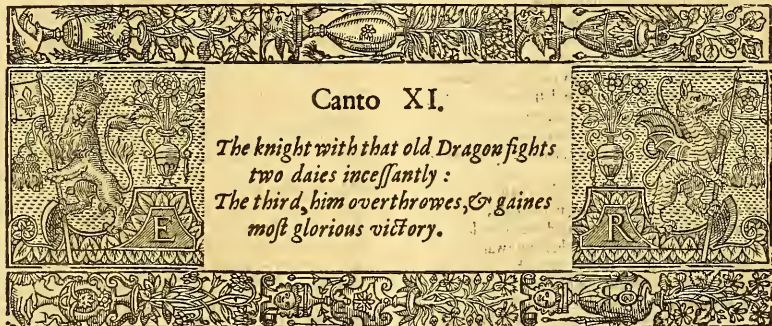 Canto XI.
The knight with that old Dragon fights
two daies inceſſantly :
The third, him overthrowes, & gaines
moſt glorious victory.
E R